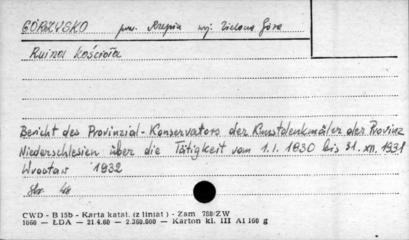 GÓRZYSKO pow. Rzepin woj. Zielona Góra
Ruina kościoła
Bericht des Provinzial-Konservators der Kunstdenkmäler der Provinz
Niederschlesien über die Tätigkeit vom 1.I.1830 bis 31.XII.1931
Wrocław 1932
Str.
CWD - B 15b - Karta katal. (z liniat) - Zam 788/ZW
1060 — ŁDA — 21.4.60 — 2.360.000 — Karton kl. III A1 160 g